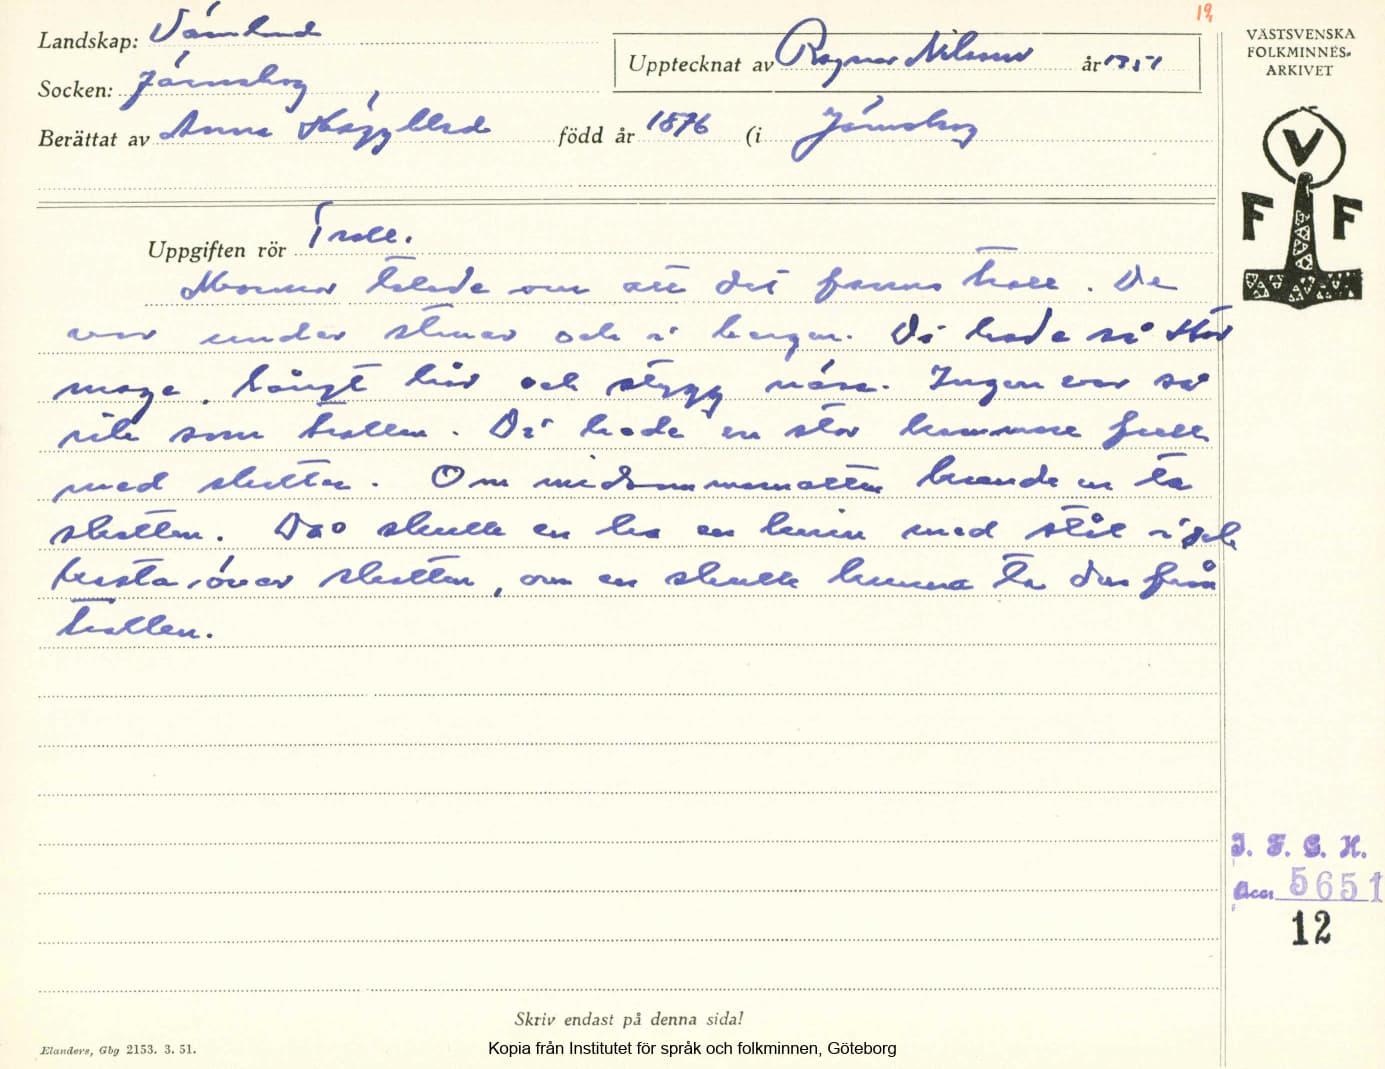 12
Landskap: Värmland
Socken: Järnskog
Upptecknat av Ragnar Nilsson år 1951
Berättat av Anna Häggblad född år 1876 (i Järnskog
VÄSTSVENSKA
FOLKMINNES-
ARKIVET
V
F F
Uppgiften rör Troll.
Mormor talade om att det fanns troll. De
var under stenar och i bergen. Di hade så stor
mage, långt hår och stygg näsa. Ingen var så
rik som trollen. Di hade en stor kammare full
med skatter. Om midsommarnatten kunde en ta
skatten. Dao skulle en ha en kniv med stål i och
kasta över skatten, om en skulle kunna ta den från
trollen.
I. F. G. H.
Acc. 5651
12
Skriv endast på denna sida!
Elanders, Gbg 2153. 3. 51.
Kopia från Institutet för språk och folkminnen, Göteborg